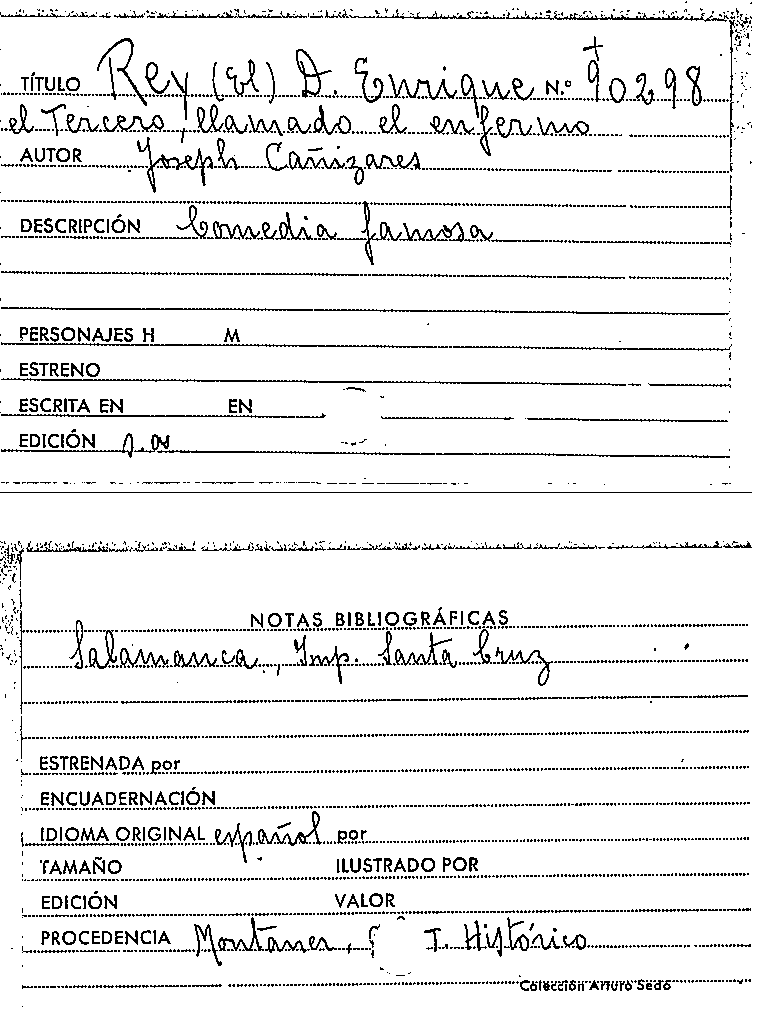 TÍTULO Rey (El) D. Enrique N.º 90298
el Tercero, llamado el enfermo
AUTOR Joseph Cañizares
DESCRIPCIÓN Comedia famosa
PERSONAJES H M
ESTRENO
ESCRITA EN EN
EDICIÓN
NOTAS BIBLIOGRÁFICAS
Salamanca, Imp. Santa Cruz
ESTRENADA por
ENCUADERNACIÓN
IDIOMA ORIGINAL español por
TAMAÑO ILUSTRADO POR
EDICIÓN VALOR
PROCEDENCIA Montaner, T. Histórico
Colección Arturo Sedó